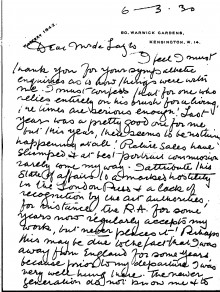 6-3-30
60, WARWICK GARDENS,
KENSINGTON, W.14.
Dear Mr de Laszlo
I feel I must
thank you for your sympathetic
enquiries as to how things were with
me. I must confess that for one who
relies entirely on his brush for a living,
the times are serious enough. Last
year was a pretty good one for me
but this year, there seems to be nothing
happening at all. Picture Sales have
slumped & at best portrait commissions
rarely come my way. I attribute this
state of affairs to a marked hostility
in the London Press & a lack of
recognition by the art authorities;
for instance the R.A. for some
years now regularly accepts my
work, but never places it! Perhaps
this may be due to the fact that I was
away from England for some years
because prior to my departure I was
very well hung there. The newer
generation do not know me & to